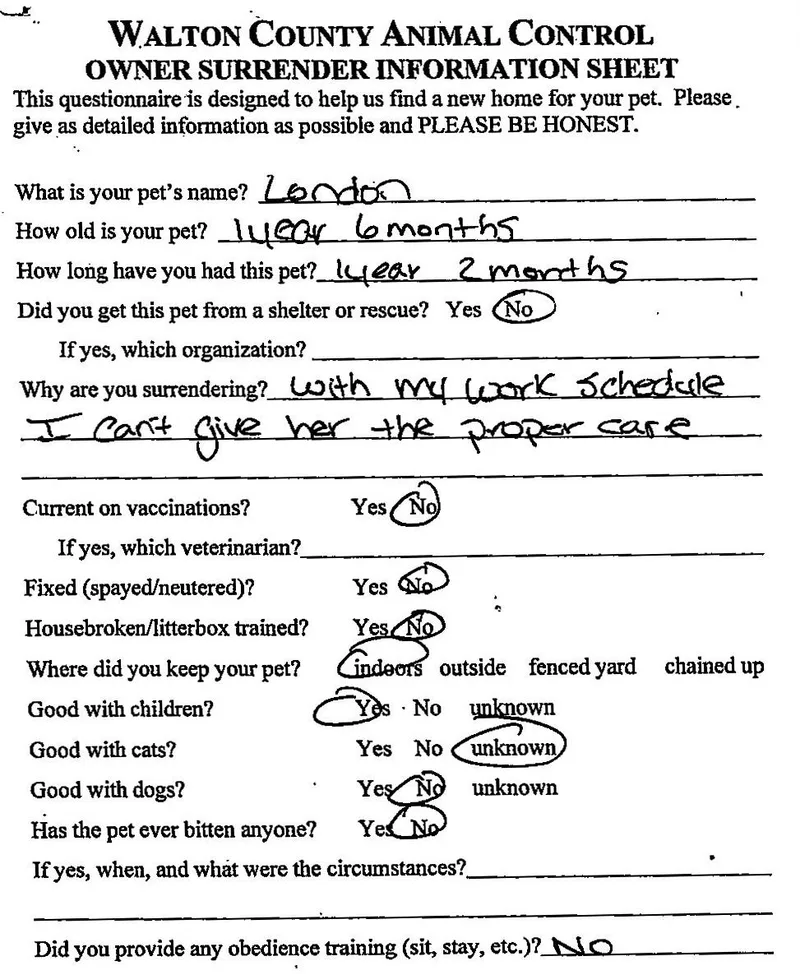 WALTON COUNTY ANIMAL CONTROL
OWNER SURRENDER INFORMATION SHEET
This questionnaire is designed to help us find a new home for your pet. Please
give as detailed information as possible and PLEASE BE HONEST.
What is your pet's name? London
How old is your pet? 1 year 6 months
How long have you had this pet? 1 year 2 months
Did you get this pet from a shelter or rescue? Yes No
If yes, which organization?
Why are you surrendering? with my work schedule
I can't give her the proper care
Current on vaccinations? Yes No
If yes, which veterinarian?
Fixed (spayed/neutered)? Yes No
Housebroken/litterbox trained? Yes No
Where did you keep your pet? indoors outside fenced yard chained up
Good with children? Yes No unknown
Good with cats? Yes No unknown
Good with dogs? Yes No unknown
Has the pet ever bitten anyone? Yes No
If yes, when, and what were the circumstances?
Did you provide any obedience training (sit, stay, etc.)? NO